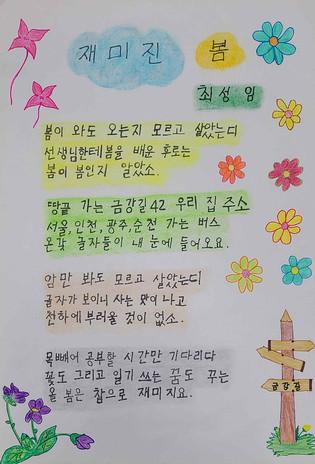 재미진 봄
최성임
봄이 와도 오는지 모르고 살았는디
선생님한테 봄을 배운 후로는
봄이 봄인지 알았소.
땅끝 가는 금강길42 우리 집 주소
서울,인천,광주,순천 가는 버스
온갖 글자들이 내 눈에 들어오요.
암만 봐도 모르고 살았는디
글자가 보이니 사는 맛이 나고
천하에 부러울 것이 없소.
목빼어 공부할 시간만 기다리다
꽃도 그리고 일기 쓰는 꿈도 꾸는
올 봄은 참으로 재미지요.
금강길